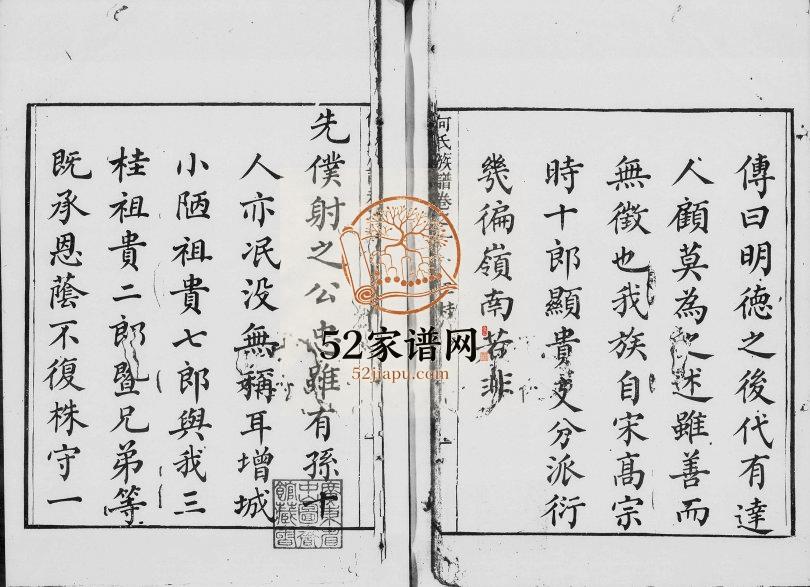 傳曰明德之後代有達
人顧莫為之述雖善而
無徵也我族自宋高宗
時十郎顯貴支分派衍
幾徧嶺南若非
何氏族譜卷之
先僕射之公忠雖有孫
人亦泯没無稱耳增城
小陋祖貴七郎與我三
桂祖貴二郎暨兄弟等
既承恩蔭不復株守一
52家谱网
52jiapu.com
廣東省
中山圖書
館藏書